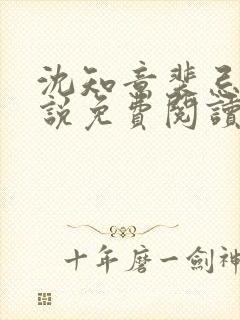 沈知意裴忌
說免費閱讀
十年磨一劍神